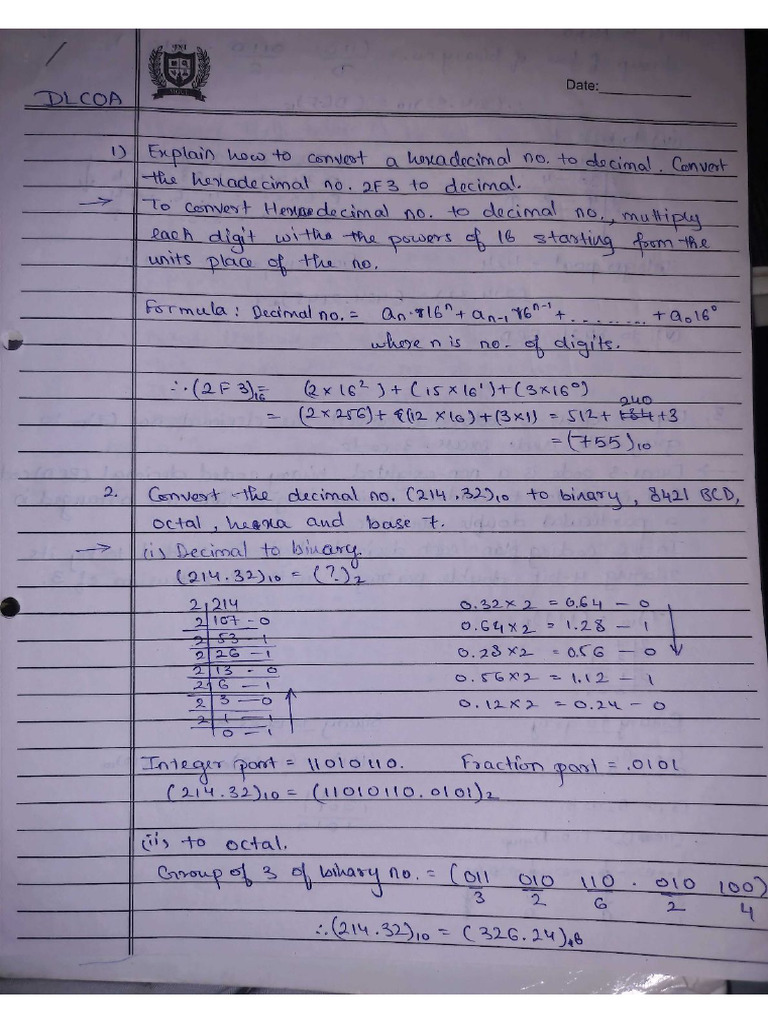 Date:
DLCOA
1) Explain how to convert a hexadecimal no. to decimal. Convert
the hexadecimal no. 2F3 to decimal.
→ To convert Hexadecimal no. to decimal no., multiply
each digit withs the powers of 16 starting from the
units place of the no.
Formula: Decimal no. = an·16^n + an-1 16^n-1 + ......... + a0 16^0
where n is no. of digits.
∴ (2F3)16 = (2×16²) + (15×16¹) + (3×16⁰)
240
= (2×256) + (12×16) + (3×1) = 512 + +3
= (755)10
2. Convert the decimal no. (214.32)10 to binary, 8421 BCD,
octal, hexa and base 7.
→ (i) Decimal to binary.
(214.32)10 = (?)2
2 214 0.32×2 = 0.64 – 0
2 107 – 0 0.64×2 = 1.28 – 1
2 53 – 1
2 26 – 1 0.28×2 = 0.56 – 0
2 13 – 0
2 6 – 1 0.56×2 = 1.12 – 1
2 3 – 0 0.12×2 = 0.24 – 0
2 1 – 1
0 – 1
Integer part = 11010110. Fraction part = .0101
(214.32)10 = (11010110.0101)2
(ii) to octal.
Group of 3 of binary no. = (011 010 110 . 010 100)
3 2 6 2 4
∴ (214.32)10 = (326.24)8